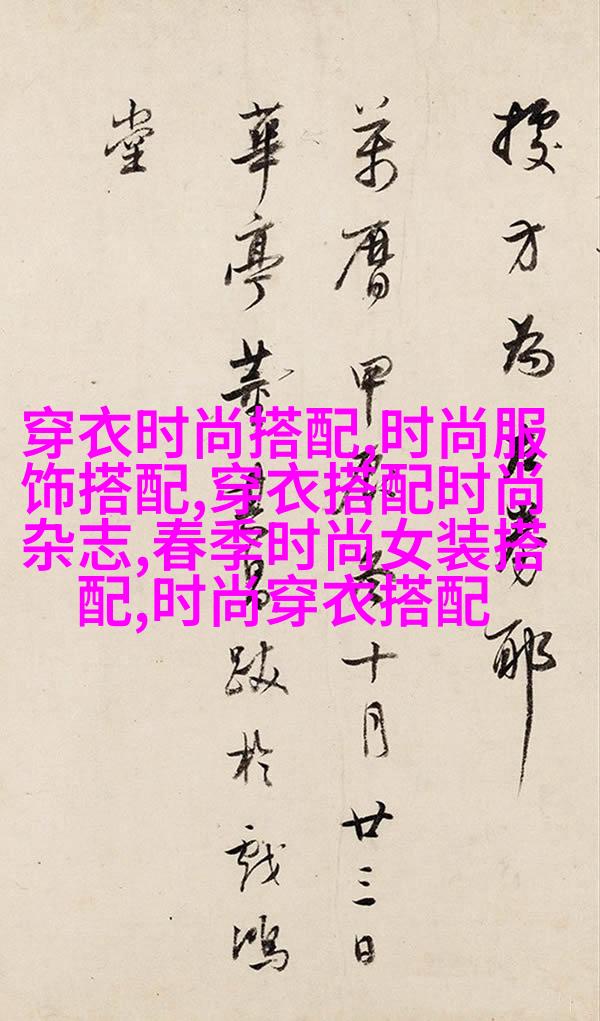 方為耶
萬曆甲辰冬十月廿三日
華亭董其昌跋於戲鴻
堂
穿衣时尚搭配,时尚服
饰搭配,穿衣搭配时尚
杂志,春季时尚女装搭
配,时尚穿衣搭配